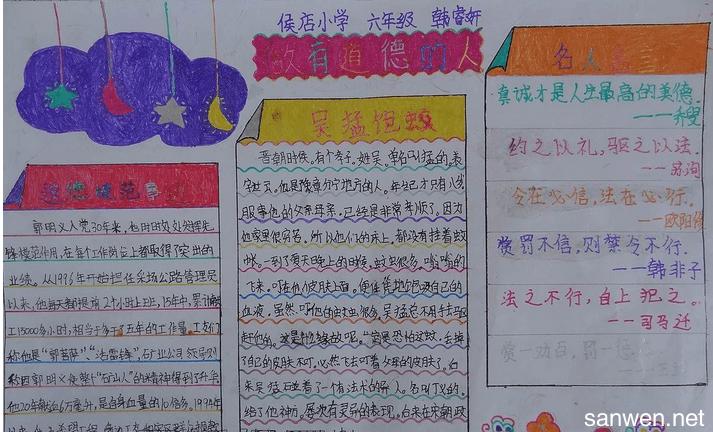 侯店小学 六年级 韩睿妍
做有道德的人
道德模范事迹
郭明义入党30年来,
锋模范作用,在每个工作岗位上都取得了突出的
业绩。从1996年开始担任采场公路管理员
以来,他每天都提前2个小时上班,15年中,累计献
工15000多小时,相当于多干了五年的工作量。工友们
称他是“郭菩萨”、“活雷锋”,矿业公司领导则
称因郭明义使整个“矿山人”的精神得到了升华。
他20年献血6万毫升,是自身血量的10倍多。1994年
吴猛饱蚊
晋朝时候,有个孝子,姓吴,单名叫猛的,表
字世云。他是豫章分宁地方的人。年纪才只有八岁,
服事他的父亲母亲,已经是非常孝顺了。因为
他家里很穷苦,所以他们的床上,都没有挂着蚊
帐。一到了夏天晚上的时候,蚊虫很多,嗡嗡的
飞来,叮在他们皮肤上面,便任意地它吸自己的
血液,虽然,叮他的蚊虫很多,吴猛总不用手去驱
赶他的。这是什么缘故呢。“因果恐怕这蚊,去掉
了自己的皮肤不叮,必然飞去叮着父母的皮肤了。后
来吴猛还碰着了一个有法术的异人,名叫丁义的,
给了他神方,屡次有灵异的表现,后来在宋朝政
名人名言
真诚才是人生最高的美德。
——乔叟
约之以礼,驱之以法。
——苏洵
令在必信,法在必行。
——欧阳修
赏罚不信,则禁令不行。
——韩非子
法之不行,自上犯之。
——司马迁
赏一劝百,罚一
sanwen.net